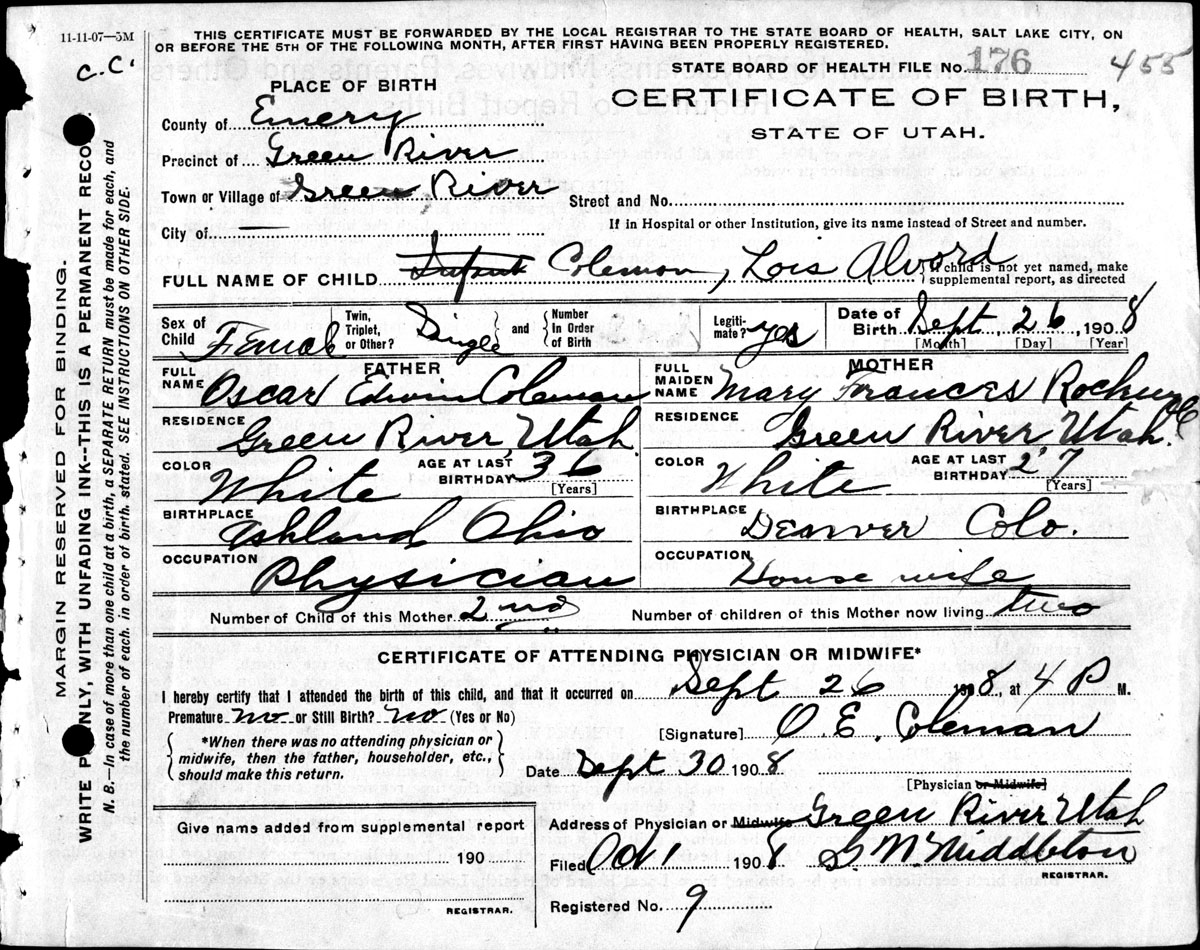 11-11-07—5M
THIS CERTIFICATE MUST BE FORWARDED BY THE LOCAL REGISTRAR TO THE STATE BOARD OF HEALTH, SALT LAKE CITY, ON
OR BEFORE THE 5TH OF THE FOLLOWING MONTH, AFTER FIRST HAVING BEEN PROPERLY REGISTERED.
C.C.
STATE BOARD OF HEALTH FILE No. 176 455
PLACE OF BIRTH
CERTIFICATE OF BIRTH,
STATE OF UTAH.
County of Emery
Precinct of Green River
Town or Village of Green River
Street and No.
City of —
If in Hospital or other Institution, give its name instead of Street and number.
FULL NAME OF CHILD Infant Coleman, Lois Alvord
{If child is not yet named, make
supplemental report, as directed
Sex of Child Female
Twin, Triplet, or Other? Single } and { Number In Order of Birth
Legitimate? yes
Date of Birth Sept, 26, 1908
[Month] [Day] [Year]
FATHER
FULL NAME Oscar Edwin Coleman
RESIDENCE Green River, Utah
COLOR White
AGE AT LAST BIRTHDAY 36
[Years]
BIRTHPLACE Ashland Ohio
OCCUPATION Physician
MOTHER
FULL MAIDEN NAME Mary Frances
RESIDENCE Green River Utah.
COLOR White
AGE AT LAST BIRTHDAY 27
[Years]
BIRTHPLACE Denver Colo.
OCCUPATION House wife
Number of Child of this Mother 2nd
Number of children of this Mother now living two
CERTIFICATE OF ATTENDING PHYSICIAN OR MIDWIFE*
I hereby certify that I attended the birth of this child, and that it occurred on Sept 26 1908, at 4 P M.
Premature no or Still Birth? no (Yes or No)
*When there was no attending physician or
midwife, then the father, householder, etc.,
should make this return.
[Signature] O. E. Coleman
Date Sept 30 1908
[Physician or Midwife]
Address of Physician or Midwife Green River Utah
Give name added from supplemental report
190
REGISTRAR.
Filed Oct 1 1908 Middleton
REGISTRAR.
Registered No. 9
MARGIN RESERVED FOR BINDING.
WRITE ONLY, WITH UNFADING INK--THIS IS A PERMANENT
N. B.—In case of more than one child at a birth, a SEPARATE RETURN must be made for each, and
the number of each, in order of birth, stated. SEE INSTRUCTIONS ON OTHER SIDE.